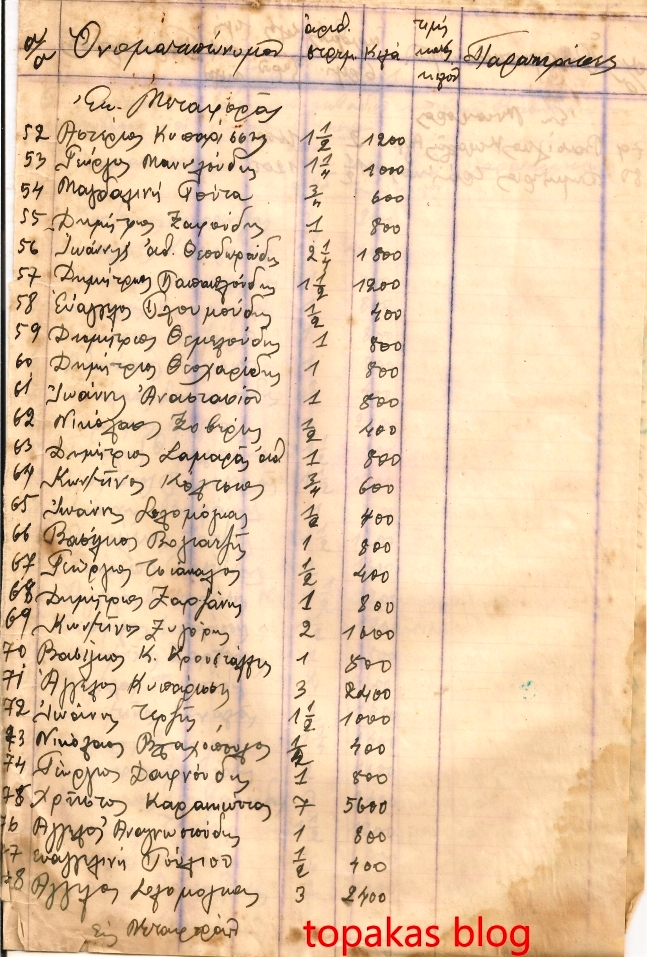 α/α Ονοματεπώνυμον αριθ. στρεμ. Κιλά τιμή Παρατηρήσεις
Εκ Μεταφοράς
52 Αστέριος Κυπαρίσσης 1 1/2 1200
53 Γεώργιος Μανωλούδης 1 1/4 1000
54 Μαγδαληνή Γούτα 3/4 600
55 Δημήτριος Ζαφούδης 1 800
56 Ιωάννης Θεοδωρούδης 2 1/4 1800
57 Δημήτριος 1 1/2 1200
58 Ευάγγελος Πλουμούδης 1/2 400
59 Δημήτριος Θεμελούδης 1 800
60 Δημήτριος Θεοχαρίδης 1 800
61 Ιωάννης Αναστασίου 1 800
62 Νικόλαος 1/2 400
63 Δημήτριος Σαμαράς 1 800
64 Κων/τίνος Κόλτσιος 3/4 600
65 Ιωάννης 1/2 400
66 Βασίλειος Βογιατζής 1 800
67 Γεώργιος 1/2 400
68 Δημήτριος 1 800
69 Κων/τίνος 2 1600
70 Βασίλειος Κ. Κρουστάλλης 1 800
71 Άγγελος Κυπαρίσσης 3 2400
72 Ιωάννης Τερζής 1 1/2 1000
73 Νικόλαος Βλαχόπουλος 1/2 400
74 Γεώργιος Δαφνούδης 1 800
75 Χρήστος Καρακώστας 7 5600
76 Άγγελος Αναγνωστούδης 1 800
77 Ευαγγελινή 1/2 400
78 Άγγελος 3 2400
Εις Μεταφοράν
topakas blog